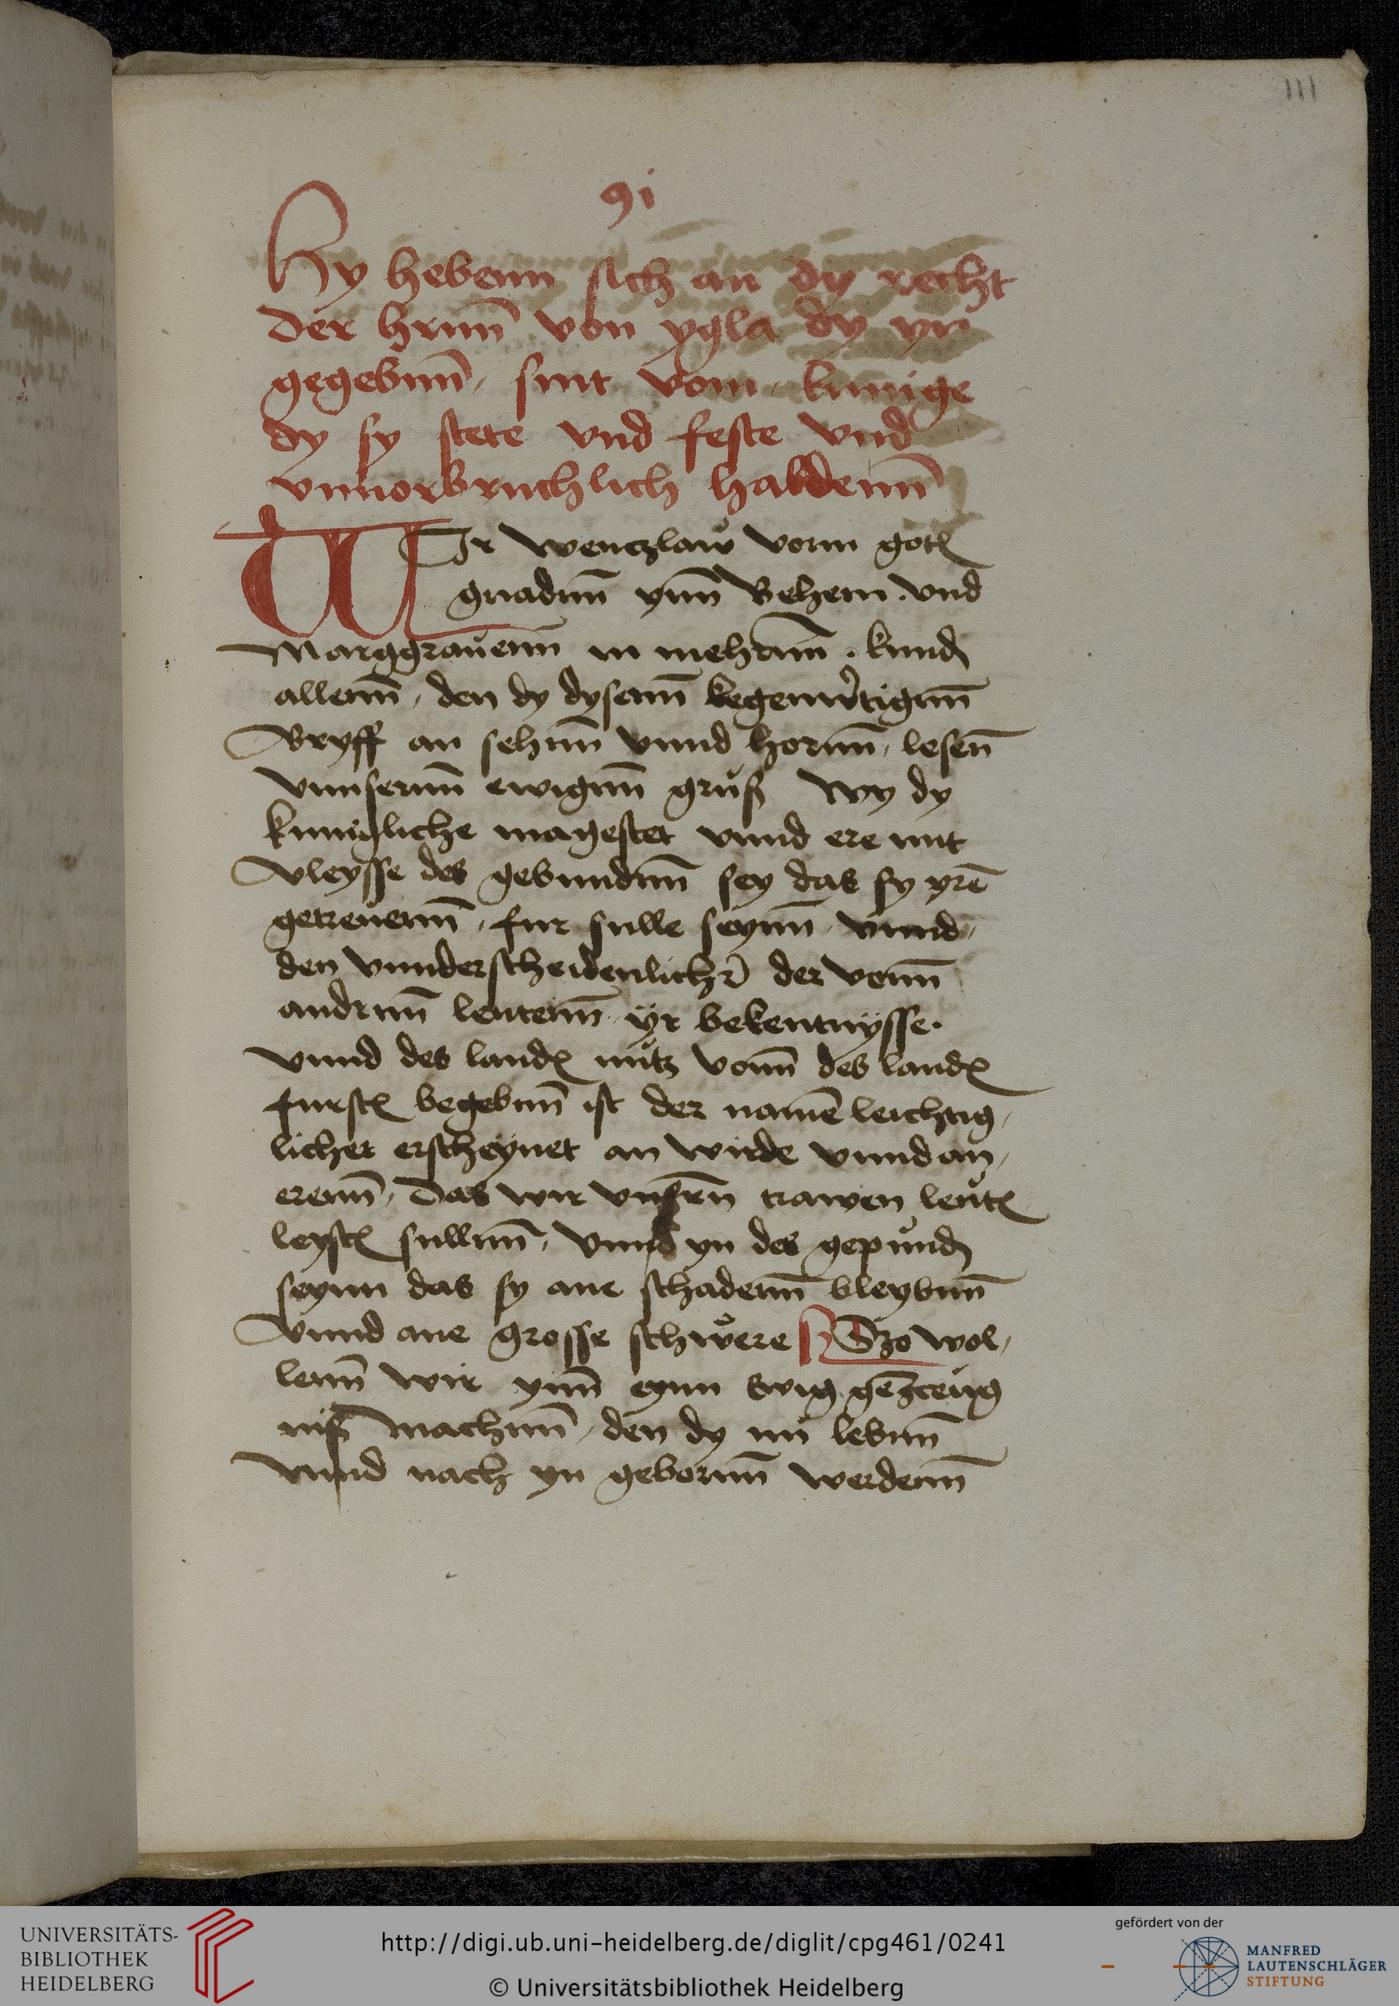 111
9i
Hy hebenn sich an dy recht
der hrnn̄ von ygla dy yn
gegebnn̄, sint vom kunige
dy sy stete vnd feste vnd
vnuorbruchlich haldenn̄
Wir wenczlaw vonn gotſ
gnadnn̄ ynn̄ Behem. vnd
Marggrauenn in mehrnn̄. kund
allenn̄, den dy dysenn̄ kegenwertignn̄
Bryff an sehnn̄ vnnd hornn̄, lesen̄
vnnsernn̄ ewignn̄ gruß wy dy
kunigliche magestet vnnd ere mit
vleysse des gebundnn̄ sey das sy yrē
getreuenn̄, fur sulle seynn̄ vnnd
den vnnderscheidenlichr̄ der vonn̄
andrnn̄ leutenn̄ yr bekentnysse.
vnnd des landſ nutz vonn̄ des landſ
furstſ begebnn̄ ist der namē leichtig,
licher erscheynet an wirde vnnd an,
erenn̄, das wir vnsern̄ trawen leutſ
leystſ sullnn̄, vnnd yn des gepund
seynn das sy ane schadenn̄ bleybnn̄
vnnd ane grosse schwere Szo wol,
lenn̄ wir ynn̄ eynn ewig gēzeug
niß machnn̄, den dy nu lebnn̄
vnnd nach yn gebornn̄ werdenn̄
UNIVERSITÄTS-
BIBLIOTHEK
HEIDELBERG
http://digi.ub.uni-heidelberg.de/diglit/cpg461/0241
© Universitätsbibliothek Heidelberg
gefördert von der
MANFRED
LAUTENSCHLÄGER
STIFTUNG